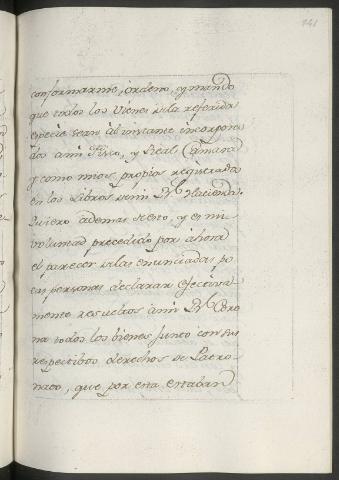 141
conformarme, ordeno, y mando
que todos los Vienes de la referida
especie sean àl instante incorpora
dos à mi Fisco, y Real Camara
y como mios propios registrados
en los Libros de mi Rl. Hacienda.
Quiero ademas de esto, y es mi
voluntad precedido por àhora
el parecer de las enunciadas po
cas personas declarar efectiva
mente resueltos à mi Rl. Coro
na todos los bienes junto con sus
respectibos derechos de Patro
nato, que por esta estaban